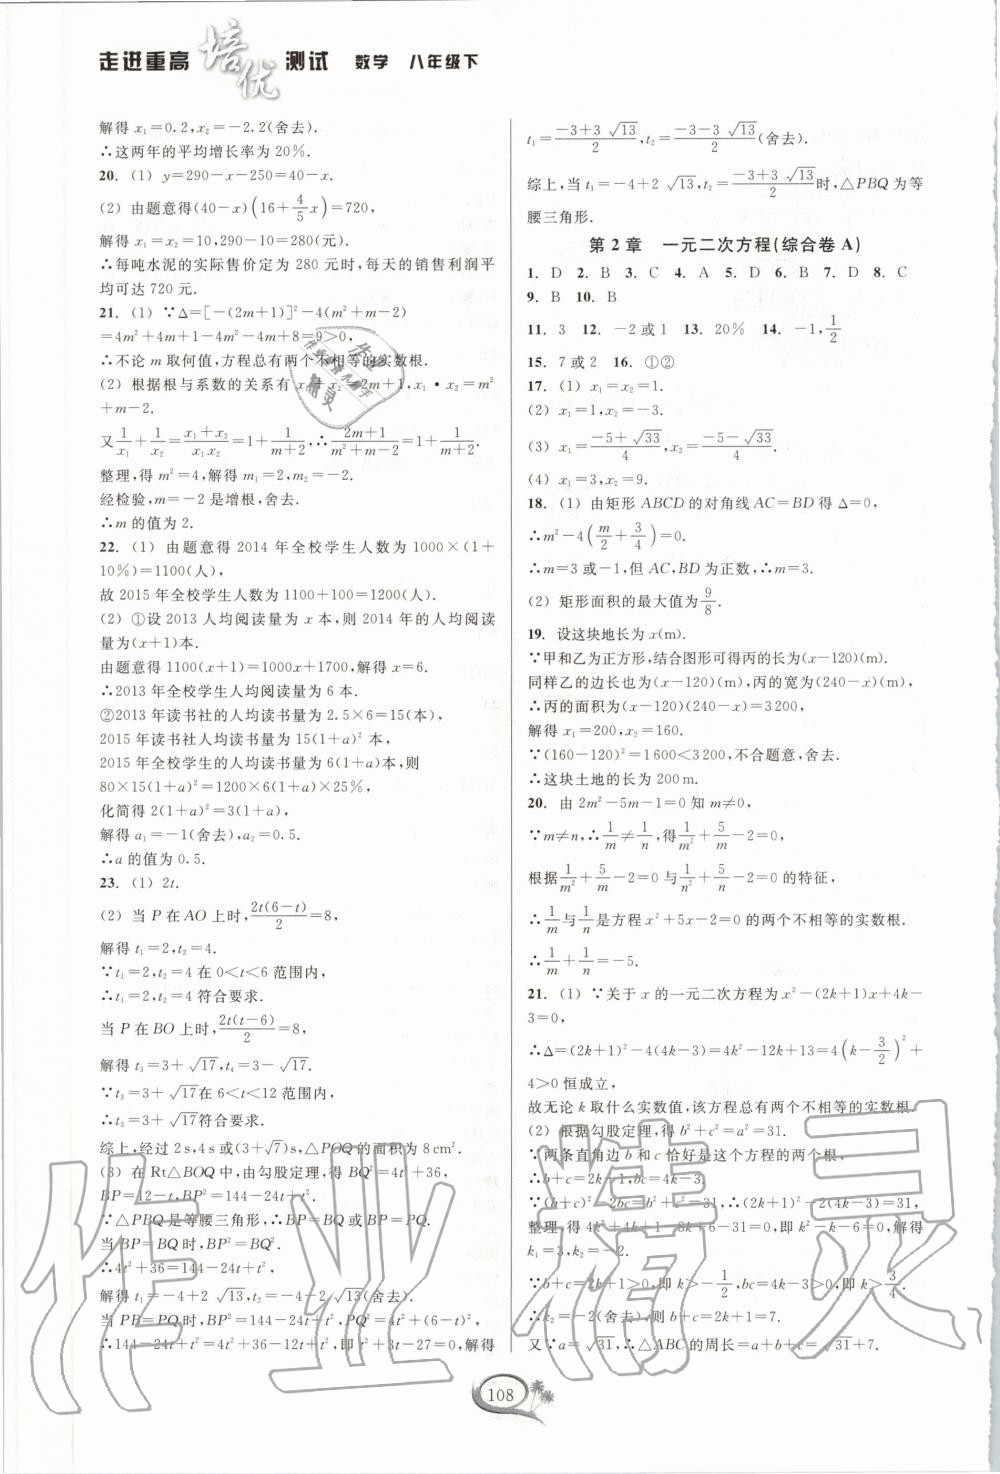 走进重高 培优 测试 数学 八年级下
解得 x₁=0.2, x₂=-2.2(舍去).
∴这两年的平均增长率为 20%.
20. (1) y=290-x-250=40-x.
(2) 由题意得(40-x)(16+4/5x)=720,
解得 x₁=x₂=10,290-10=280(元).
∴每吨水泥的实际售价定为 280 元时,每天的销售利润平
均可达 720 元.
21. (1) ∵Δ=[-(2m+1)]²-4(m²+m-2)
=4m²+4m+1-4m²-4m+8=9>0,
∴不论 m 取何值,方程总有两个不相等的实数根.
(2) 根据根与系数的关系有 x₁+x₂=2m+1,x₁·x₂=m²
+m-2.
又1/x₁+1/x₂=(x₁+x₂)/(x₁x₂)=1+1/(m+2),∴(2m+1)/(m²+m-2)=1+1/(m+2).
整理,得 m²=4,解得 m₁=2,m₂=-2.
经检验,m=-2 是增根,舍去.
∴m 的值为 2.
22. (1) 由题意得 2014 年全校学生人数为 1000×(1+
10%)=1100(人),
故 2015 年全校学生人数为 1100+100=1200(人).
(2) ①设 2013 人均阅读量为 x 本,则 2014 年的人均阅读
量为(x+1)本.
由题意得 1100(x+1)=1000x+1700,解得 x=6.
∴2013 年全校学生人均阅读量为 6 本.
②2013 年读书社的人均读书量为 2.5×6=15(本),
2015 年读书社人均读书量为 15(1+a)² 本,
2015 年全校学生的人均读书量为 6(1+a)本,则
80×15(1+a)²=1200×6(1+a)×25%,
化简得 2(1+a)²=3(1+a),
解得 a₁=-1(舍去),a₂=0.5.
∴a 的值为 0.5.
23. (1) 2t.
(2) 当 P 在 AO 上时,2t(6-t)/2=8,
解得 t₁=2,t₂=4.
∵t₁=2,t₂=4 在 0<t<6 范围内,
∴t₁=2,t₂=4 符合要求.
当 P 在 BO 上时,2t(t-6)/2=8,
解得 t₃=3+√17,t₄=3-√17.
∵t₃=3+√17在 6<t<12 范围内,
∴t₃=3+√17符合要求.
综上,经过 2 s,4 s 或(3+√7)s,△POQ 的面积为 8 cm².
(3) 在 Rt△BOQ 中,由勾股定理,得 BQ²=4t²+36,
BP=12-t,BP²=144-24t+t².
∵△PBQ 是等腰三角形,∴BP=BQ 或 BP=PQ.
当 BP=BQ 时,BP²=BQ².
∴4t²+36=144-24t+t²,
解得 t₁=-4+2√13,t₂=-4-2√13(舍去).
当 PB=PQ 时,BP²=PQ²,PQ²=4t²+(6-t)²,
∴144-24t+t²=4t²+36-12t+t²,即 t²+3t-27=0,解得
t₁=(-3+3√13)/2,t₂=(-3-3√13)/2(舍去).
综上,当 t₁=-4+2√13,t₂=(-3+3√13)/2时,△PBQ 为等
腰三角形.
第 2 章 一元二次方程(综合卷 A)
1. D 2. B 3. C 4. A 5. D 6. B 7. D 8. C
9. B 10. B
11. 3 12. -2 或 1 13. 20% 14. -1,1/2
15. 7 或 2 16. ①②
17. (1) x₁=x₂=1.
(2) x₁=1,x₂=-3.
(3) x₁=(-5+√33)/4,x₂=(-5-√33)/4.
(4) x₁=3,x₂=9.
18. (1) 由矩形 ABCD 的对角线 AC=BD 得 Δ=0,
∴m²-4(m/2+3/4)=0.
∴m=3 或-1,但 AC,BD 为正数,∴m=3.
(2) 矩形面积的最大值为9/8.
19. 设这块地长为 x(m).
∵甲和乙为正方形,结合图形可得丙的长为(x-120)(m).
同样乙的边长也为(x-120)(m),丙的宽为(240-x)(m),
∴丙的面积为(x-120)(240-x)=3200,
解得 x₁=200,x₂=160.
∵(160-120)²=1600<3200,不合题意,舍去.
∴这块土地的长为 200 m.
20. 由 2m²-5m-1=0 知 m≠0,
∵m≠n,∴1/m≠1/n,得1/m²+5/m-2=0,
根据1/m²+5/m-2=0 与1/n²+5/n-2=0 的特征,
∴1/m与1/n是方程 x²+5x-2=0 的两个不相等的实数根.
∴1/m+1/n=-5.
21. (1) ∵关于 x 的一元二次方程为 x²-(2k+1)x+4k-
3=0,
∴Δ=(2k+1)²-4(4k-3)=4k²-12k+13=4(k-3/2)²+
4>0 恒成立,
故无论 k 取什么实数值,该方程总有两个不相等的实数根.
(2) 根据勾股定理,得 b²+c²=a²=31.
∵两条直角边 b 和 c 恰好是这个方程的两个根,
∴b+c=2k+1,bc=4k-3.
∵(b+c)²-2bc=b²+c²=31,∴(2k+1)²-2(4k-3)=31,
整理,得 4k²+4k+1-8k+6-31=0,即 k²-k-6=0,解得
k₁=3,k₂=-2.
∵b+c=2k+1>0,即 k>-1/2,bc=4k-3>0,即 k>3/4.
∴k₂=-2(舍去),则 b+c=2k+1=7.
又∵a=√31,∴△ABC 的周长=a+b+c=√31+7.
108
作业精灵